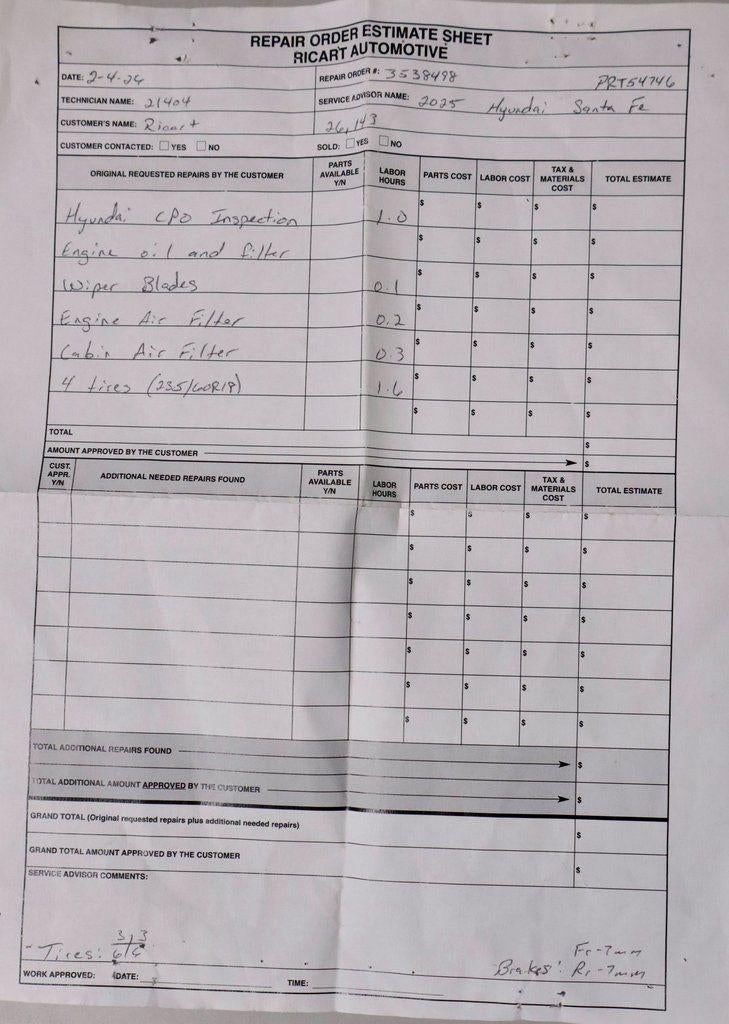 REPAIR ORDER ESTIMATE SHEET
RICART AUTOMOTIVE
DATE: 2-4-26 REPAIR ORDER #: 3538498 PRT54746
TECHNICIAN NAME: 21404 SERVICE ADVISOR NAME: 2025 Hyundai Santa Fe
CUSTOMER'S NAME: Ricart 26,143
CUSTOMER CONTACTED: YES NO SOLD: YES NO
ORIGINAL REQUESTED REPAIRS BY THE CUSTOMER PARTS AVAILABLE Y/N LABOR HOURS PARTS COST LABOR COST TAX & MATERIALS COST TOTAL ESTIMATE
Hyundai CPO Inspection 1.0 $ $ $ $
Engine oil and filter $ $ $ $
Wiper Blades 0.1 $ $ $ $
Engine Air Filter 0.2 $ $ $ $
Cabin Air Filter 0.3 $ $ $ $
4 tires (235/60R18) 1.6 $ $ $ $
$ $ $ $
TOTAL $
AMOUNT APPROVED BY THE CUSTOMER $
CUST. APPR. Y/N ADDITIONAL NEEDED REPAIRS FOUND PARTS AVAILABLE Y/N LABOR HOURS PARTS COST LABOR COST TAX & MATERIALS COST TOTAL ESTIMATE
$ $ $ $
$ $ $ $
$ $ $ $
$ $ $ $
$ $ $ $
$ $ $ $
$ $ $ $
TOTAL ADDITIONAL REPAIRS FOUND $
TOTAL ADDITIONAL AMOUNT APPROVED BY THE CUSTOMER $
GRAND TOTAL (Original requested repairs plus additional needed repairs) $
GRAND TOTAL AMOUNT APPROVED BY THE CUSTOMER $
SERVICE ADVISOR COMMENTS:
3 3
- Tires: 6 6
Fr-7mm
Brakes: Rr-7mm
WORK APPROVED: DATE: TIME: